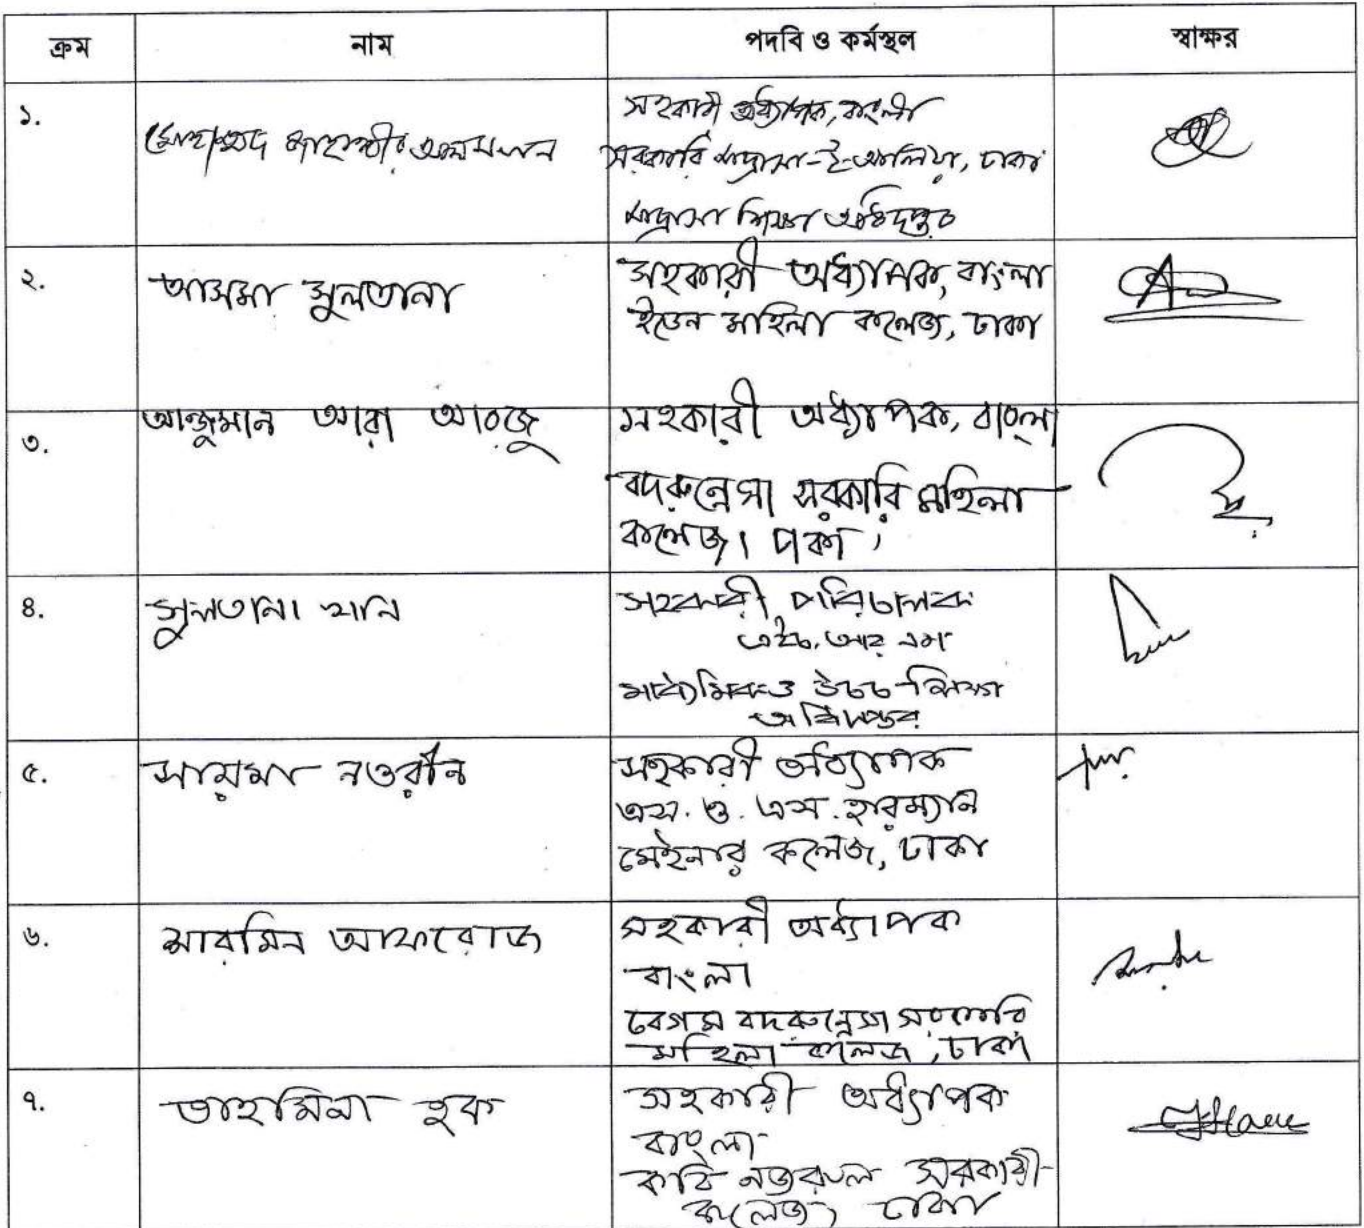 ক্রম নাম পদবি ও কর্মস্থল স্বাক্ষর
১. মোহাম্মদ জাহাঙ্গীর আলম সহকারী অধ্যাপক, বাংলা
সরকারি মাদ্রাসা-ই-আলিয়া, ঢাকা
মাদ্রাসা শিক্ষা অধিদপ্তর
২. আসমা সুলতানা সহকারী অধ্যাপক, বাংলা
ইডেন মহিলা কলেজ, ঢাকা
৩. আন্জুমান আরা আরজু সহকারী অধ্যাপক, বাংলা
বদরুন্নেসা সরকারি মহিলা
কলেজ। ঢাকা।
৪. সুলতানা খানি সহকারী পরিচালক
এইচ. আর এম
মাধ্যমিক ও উচ্চ শিক্ষা
অধিদপ্তর
৫. সায়মা নওরীন সহকারী অধ্যাপক
এস. ও. এস. হারম্যান
মেইনার কলেজ, ঢাকা
৬. শারমিন আফরোজ সহকারী অধ্যাপক
বাংলা
বেগম বদরুন্নেসা সরকারি
মহিলা কলেজ, ঢাকা
৭. তাহমিনা হক সহকারী অধ্যাপক
বাংলা
কবি নজরুল সরকারী
কলেজ, ঢাকা